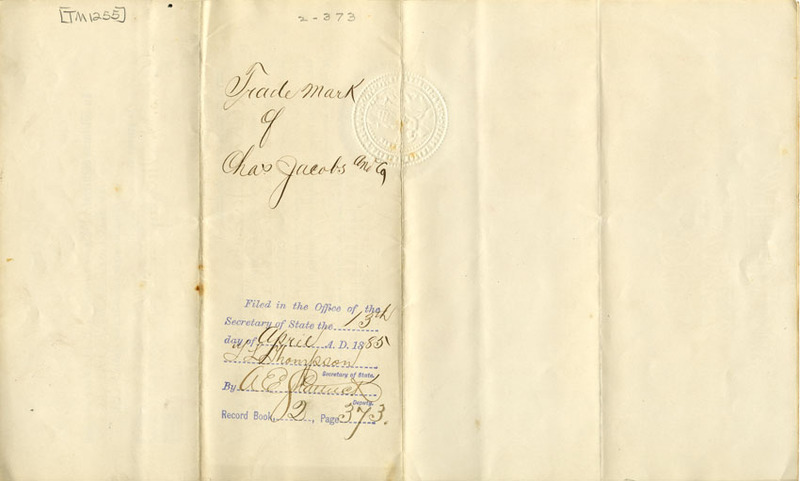 [TM1255]
2-373
Trade Mark
of
Chas Jacobs and Co
Filed in the Office of the
Secretary of State the 13th
day of April A. D. 1885
Thompson
Secretary of State.
By A E
Deputy.
Record Book, 2, Page 373.